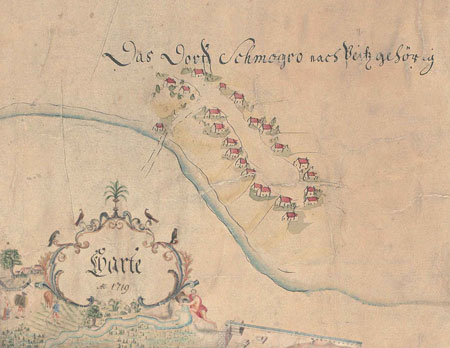 Das Dorf Schmogro nach Peitz gehörig
Carte
1719